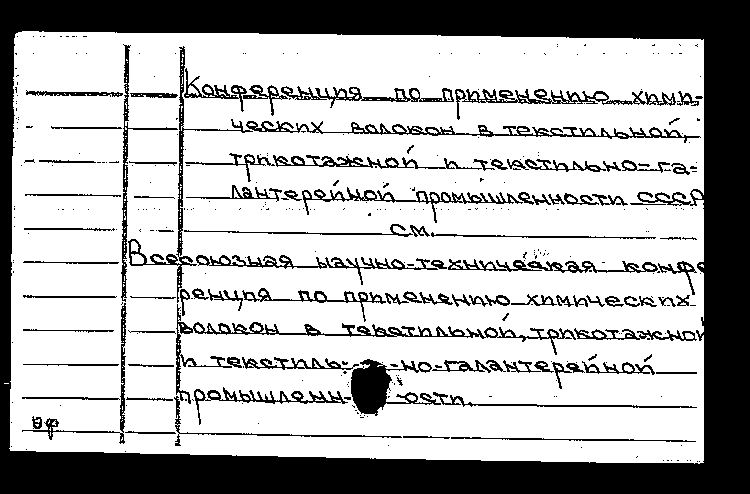 Конференция по применению хими-
ческих волокон в текстильной,
трикотажной и текстильно-га-
лантерейной промышленности СССР
см.
Всесоюзная научно-техническая конфе
ренция по применению химических
волокон в текстильной, трикотажной
и текстиль- -но-галантерейной
промышленн- -ости.